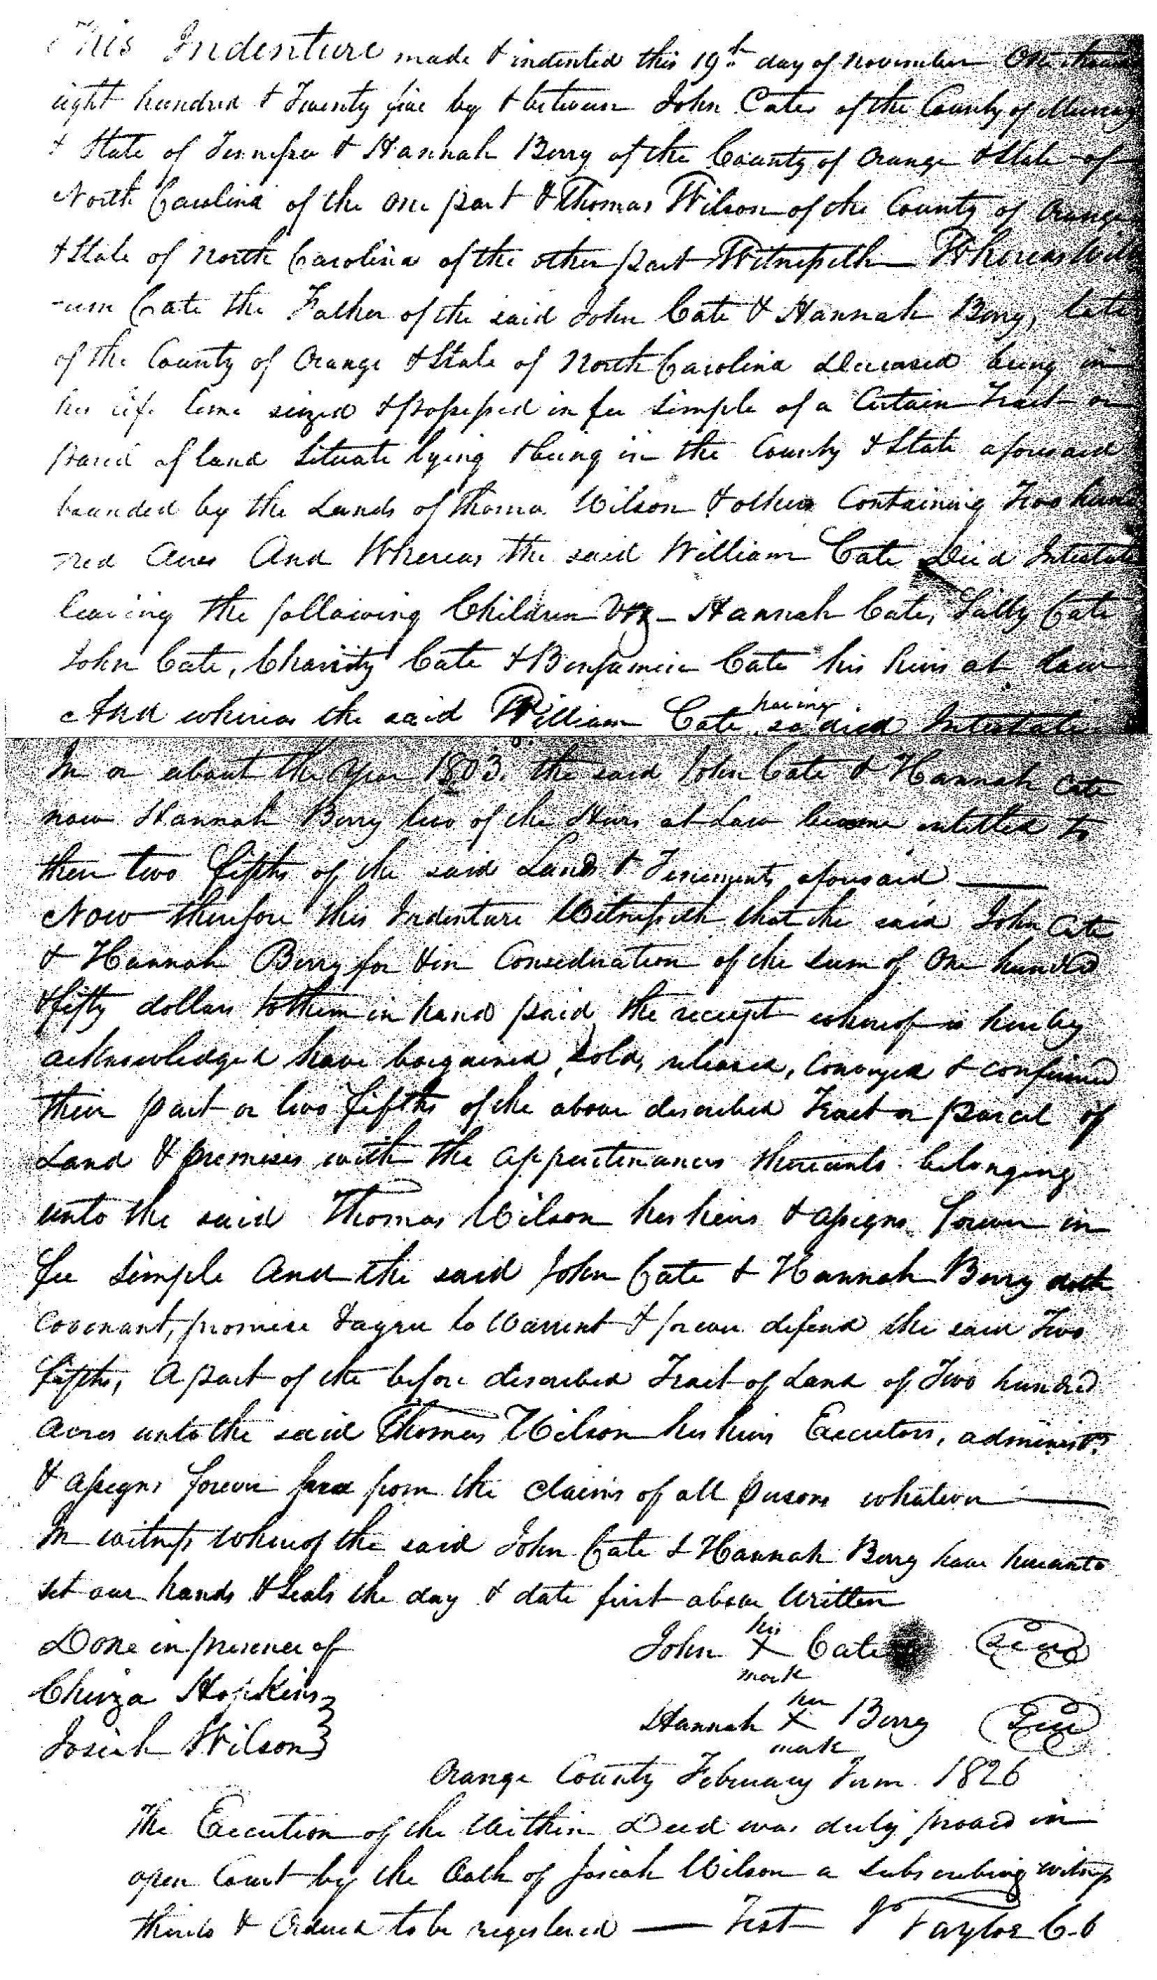 This Indenture made & indented this 19th day of November One thous
eight hundred & Twenty five by & between John Cates of the County of Murray
& State of Tennessee & Hannah Berry of the County of Orange & State of
North Carolina of the one part & Thomas Wilson of the County of Orange
& State of North Carolina of the other part Witnesseth Whereas Willi
-am Cate the Father of the said John Cate & Hannah Berry, late
of the County of Orange & State of North Carolina deceased being in
his life time seized & possessed in fee simple of a Certain Tract or
parcel of land Situate lying & being in the County & State aforesaid
bounded by the Lands of Thomas Wilson & others Containing Two hund
red Acres And Whereas the said William Cate Died Intestate
leaving the following Children Viz - Hannah Cate, Sally Cate
John Cate, Charity Cate & Benjamin Cate his heirs at law
And whereas the said William Cate having so died Intestate
In or about the year 1803. the said John Cate & Hannah Cate
now Hannah Berry two of the Heirs at Law became entitled to
their two fifths of the said Land & Tenements aforesaid
Now therefore this Indenture Witnesseth that the said John Cate
& Hannah Berry for & in Consideration of the sum of One hundred
& fifty dollars to them in hand paid, the receipt whereof is hereby
acknowledged have bargained, sold, released, conveyed & confirmed
their part or two fifths of the above described Tract or parcel of
Land & premises with the appurtenances thereunto belonging
unto the said Thomas Wilson his heirs & assigns forever in
fee simple And the said John Cate & Hannah Berry doth
Covenant, promise & agree to Warrent & forever defend the said Two
fifths, A part of the before described Tract of Land of Two hundred
Acres unto the said Thomas Wilson his heirs Executors, administrs
& assigns forever free from the claims of all persons whatever
In witness Whereof the said John Cate & Hannah Berry have hereunto
set our hands & Seals the day & date first above Written
Done in presence of John his X mark Cate Seal
Chesza Hopkins
Josiah Wilson Hannah her X mark Berry Seal
Orange County February Term 1826
The Execution of the Within Deed was duly proved in
open Court by the Oath of Josiah Wilson a subscribing witness
thereto & Ordered to be registered Test J Taylor C.C